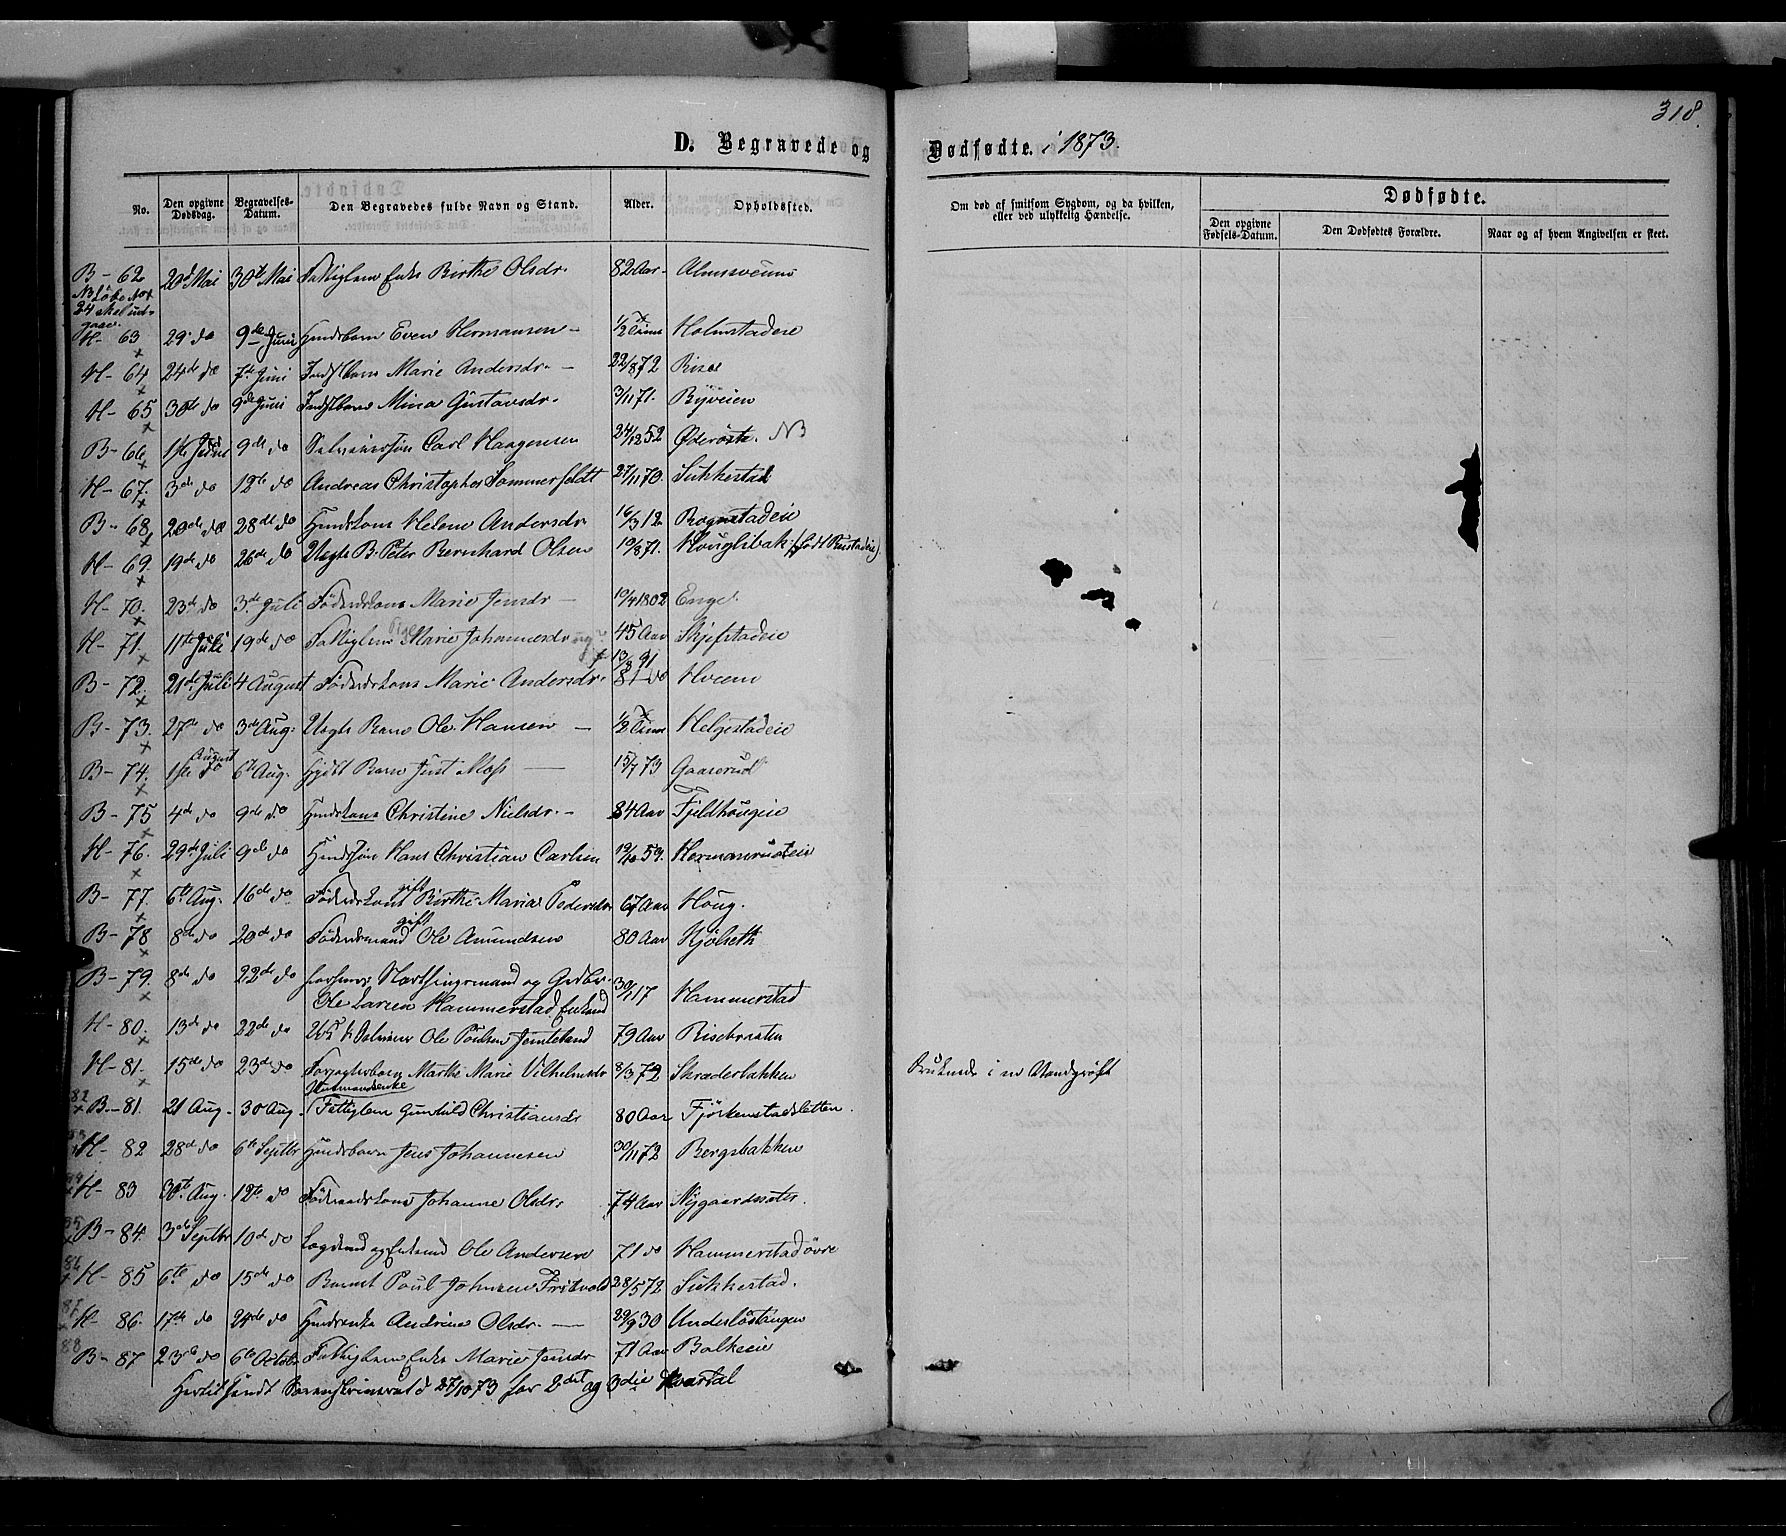 318.
D. Begravede og Dødfødte. i 1873.
No. Den opgivne Dødsdag. Begravelses-Datum. Den Begravedes fulde Navn og Stand. Alder. Opholdssted. Om død af smitsom Sygdom, og da hvilken, eller ved ulykkelig Hændelse. Dødfødte.
Den opgivne Fødsels-Datum. Den Dødfødtes Forældre. Naar og af hvem Angivelsen er skeet.
B- 62 20de Mai 30te Mai Fattiglem Enke Birthe Olsdr. 82 Aar
NB Løbe No
H- 63 29 do 9de Juni Huusbarn Even Hermansen - 1/2 Time Holmstadeie
H- 64 24de do 7de Juni Marie Andersdr. - 22/8 72 Risø
H- 65 30te do 9de Juni Mina Gustavsdr. 3/11 71. Byveien
B- 66 1ste Juni 9de do Carl Haagensen 24/12 52 NB
H- 67. 3de do 12te do Andreas Christopher Sommerfeldt 27/11 70. Sukkestad
B- 68 20de do 28de do Helene Andersdr 16/3 12 Rognstadeie
H- 69. 19de do 26de do Uægte B. Peter Bernhard Olsen 19/8 71. (født Rustadeie).
H- 70. 23de do 3de Juli Føderdskone Marie Jensdr - 10/4 1802 Enge.
H- 71. 11te Juli 19de do Fattiglem Pige Marie Johannesdr 45 Aar Skjefstadeie
B- 72. 21de Juli 4 August Føderdskone Marie Andersdr. 13/8 91 81 do Hveem
B- 73. 27de do 3de Aug. Uægte Barn Ole Hansen - 1/2 Time Helgestadeie
B- 74. 1ste August 6te Aug. Barn Just Moss 15/7 73 Gaaserud
B- 75 4de do 9de do Huuskone Christine Nielsdr. - 84 Aar Fjeldhougeie
H- 76. 29de Juli 9de do Hans Christian Carlsen 19/10 59. Hermanrudeie
B- 77. 6te Aug. 16de do Føderdskone gift Birthe Maria Pedersdr 67 Aar Houg.
B- 78 8de do 20de do Føderdsmand gift Ole Amundsen 80 Aar Kjølseth
B- 79. 8de do 22de do forhenv. Storthingsmand og Gaardbr.
Ole Larsen Hammerstad, Enkemd 30/1 17 Hammerstad
H- 80. 13de do 22de do Ole Poulsen Jemteland 79 Aar
H- 81. 15de do 23de do Marthe Marie Vilhelmsdr 8/3 72 Skræderbakken Druknede i en Vandgrøft
Huusmandsenke
82 B- 81. 21 Aug. 30 Aug. Fattiglem Gunhild Christiansdr 80 Aar Fjørkenstadsletten.
H- 82 28de do 6te Septbr Huusbarn Jens Johannesen 30/11 72 Bergsbakken
H- 83 30te Aug. 12te do Føderaadskone Johanne Olsdr. 74 Aar Nygaardsæter
85 B- 84. 3de Septbr 10de do Lægdsmd og Enkemd Ole Andersen 71 do Hammerstad øvre
86 H- 85 6te do 15de do Barnet Poul Johnsen 28/5 72 Sukkestad.
87 H- 86. 17de do 24de do Andrine Olsdr. 29/9 30
88 B- 87 23de do 6te Octobr Fattiglem Enke Marie Jensdr 71 Aar Balkeeie
Hertil sendt Sorenskriveren d 27/10 73 for 2det og 3die Kvartal